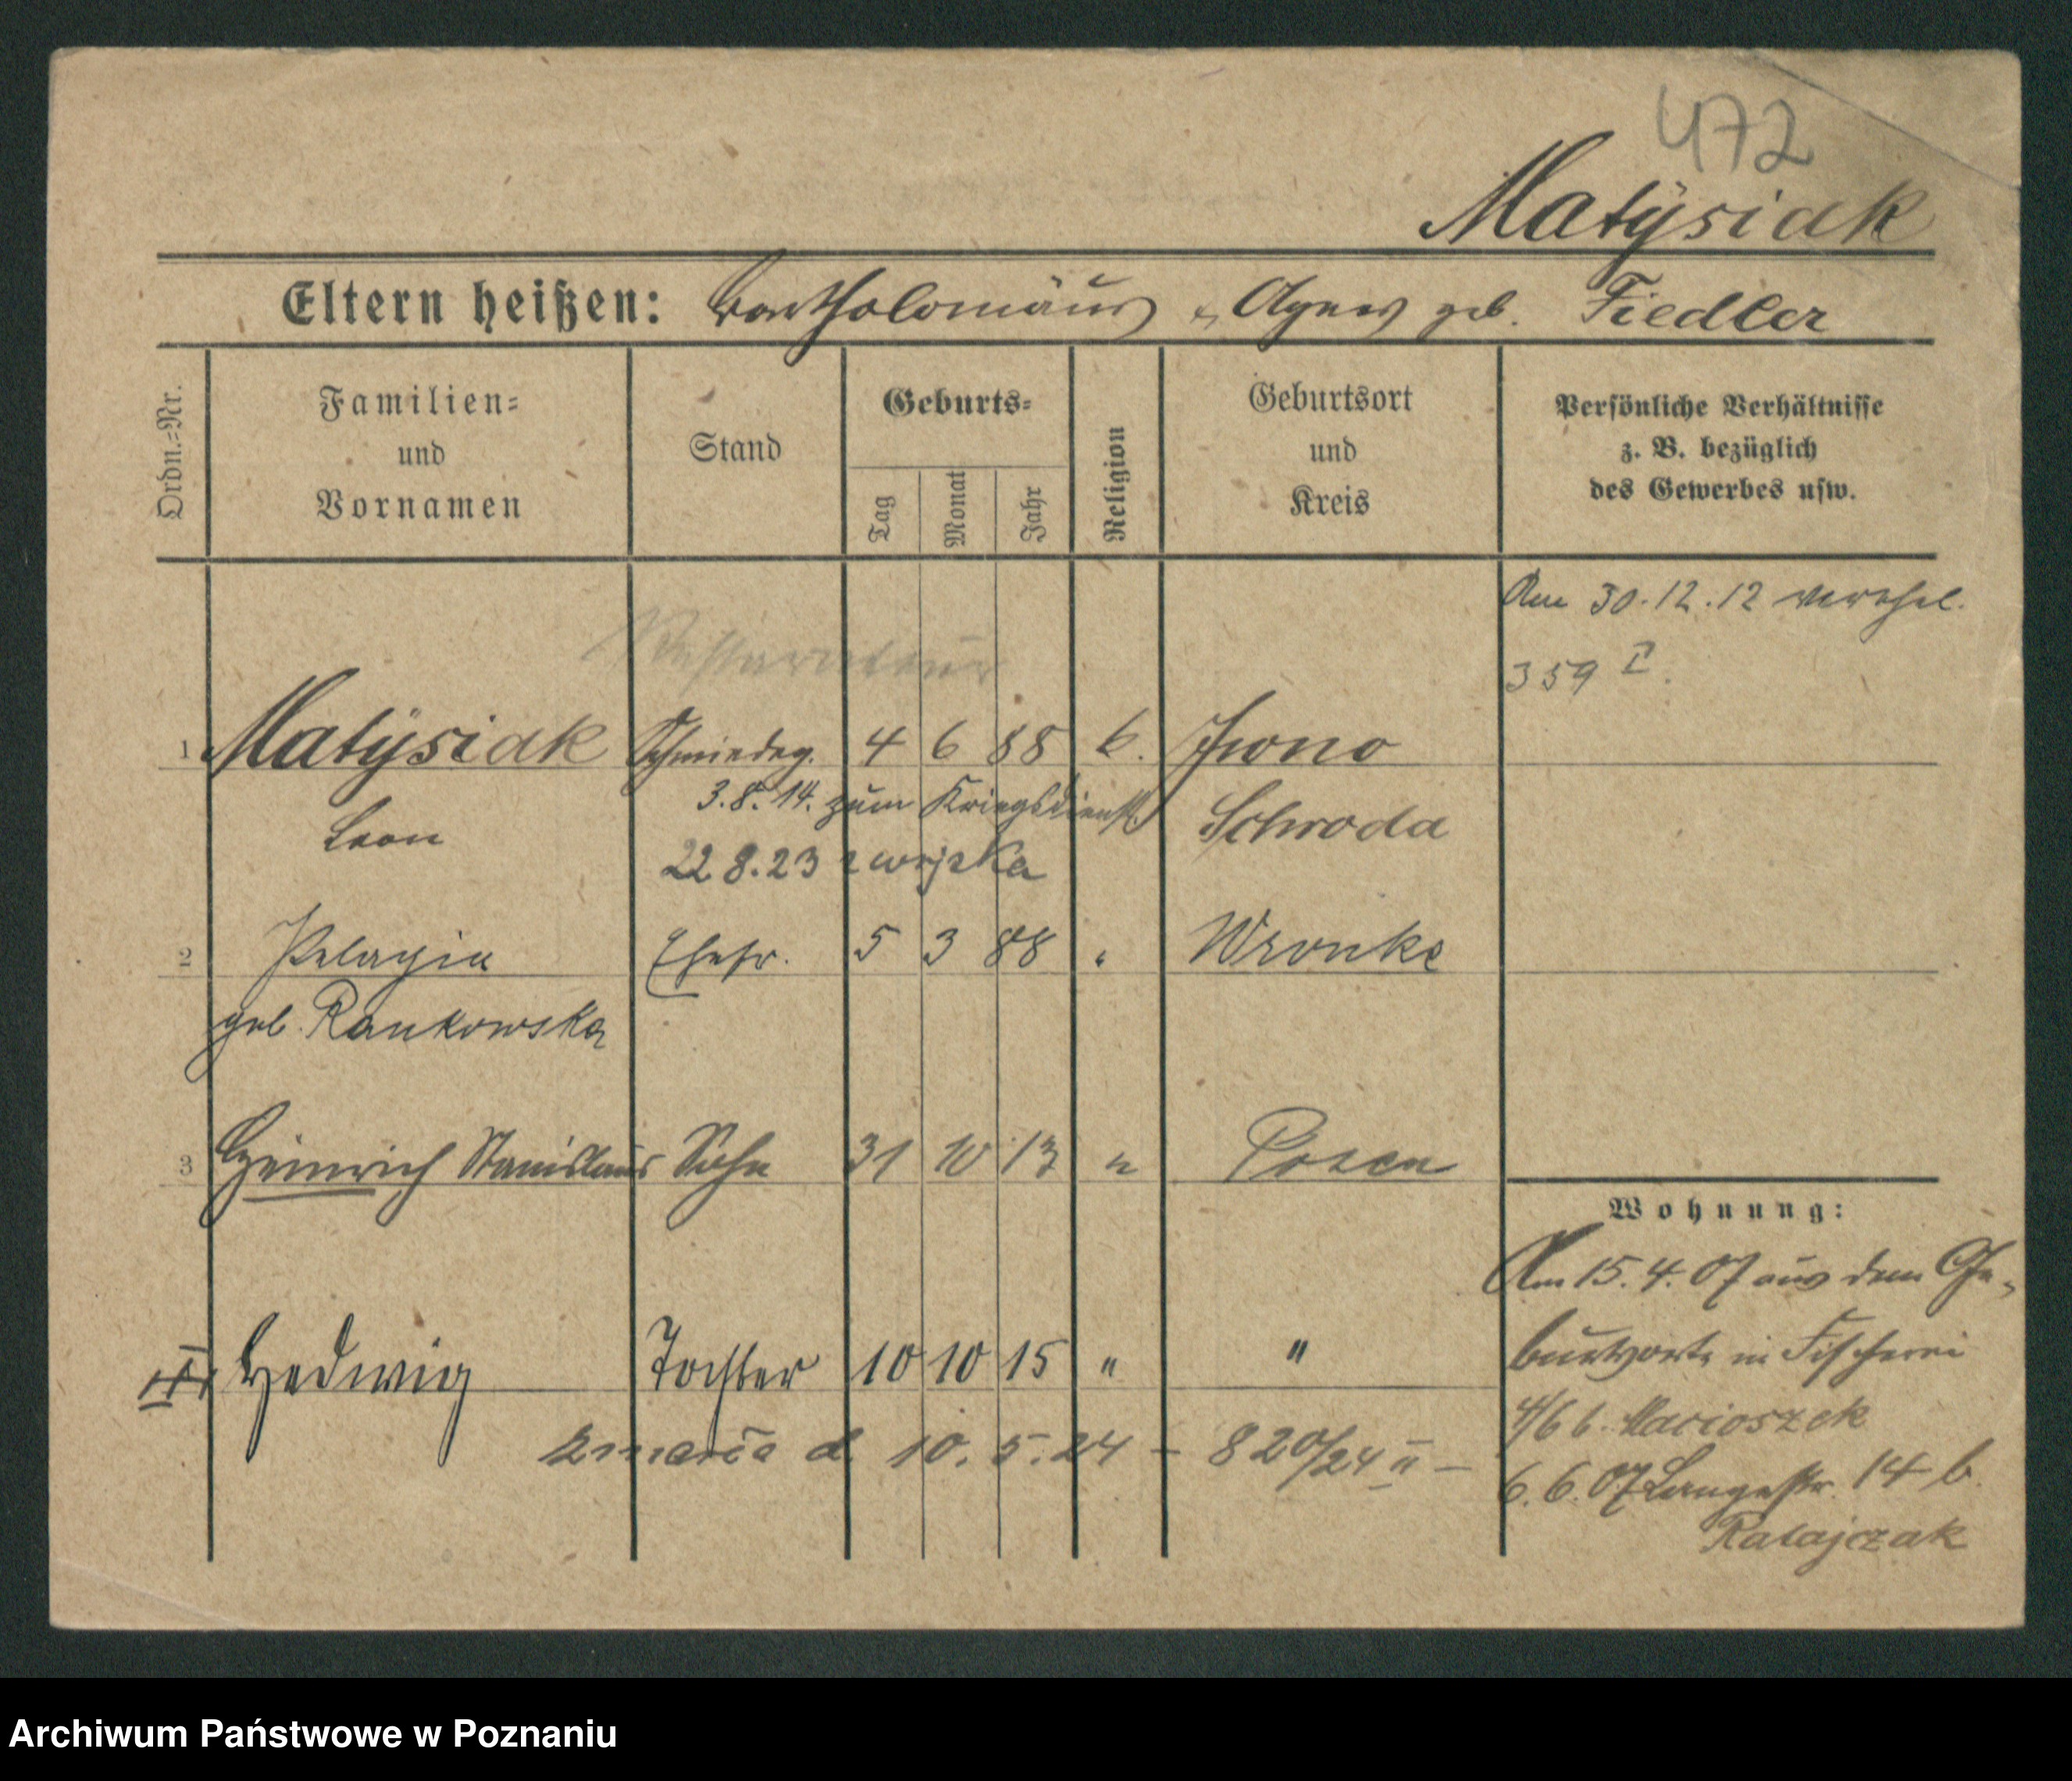 472
Matysiak
Eltern heißen: Bartholomäus u. Agnes geb. Fiedler
Ordn.-Nr.
Familien-
und
Vornamen
Stand
Geburts-
Tag
Monat
Jahr
Religion
Geburtsort
und
Kreis
Persönliche Verhältnisse
z. B. bezüglich
des Gewerbes usw.
Am 30.12.12 verehel.
359 I.
1 Matysiak Schmiedeg. 4 6 88 k. Iwno
3.8.14. zum Kriegsdienst.
Leon Schroda
22 8.23 z wojska
2 Pelagia Ehefr. 5 3 88 " Wronke
geb. Rankowska
3 Heinrich Stanislaus Sohn 31 10 13 " Posen
Wohnung:
Am 15.4.07 aus dem Ge-
burtsorte in Fischerei
Hedwig Tochter 10 10 15 " "
4/6 b. Macioszek
zmarła d. 10.5.24 – 820/24 II –
6.6.07 Langestr. 14 b.
Ratajczak
Archiwum Państwowe w Poznaniu